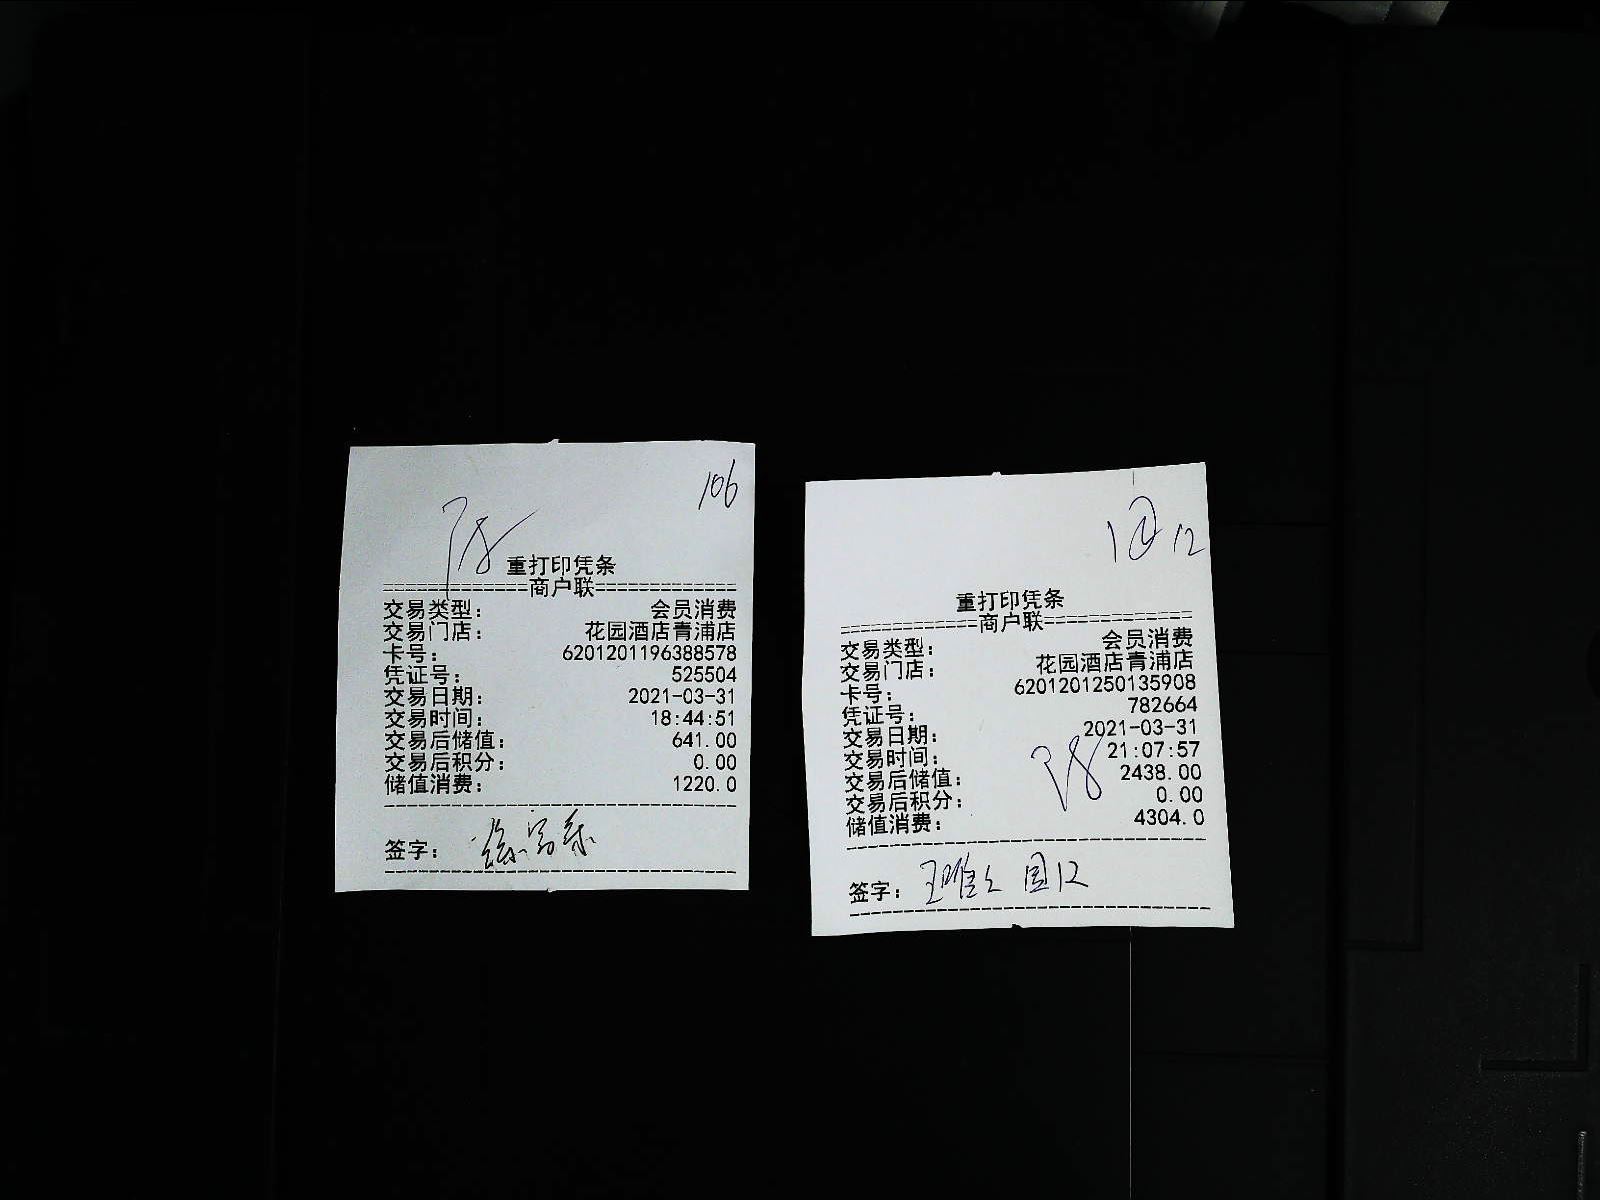 106
重打印凭条
=============商户联=============
交易类型： 会员消费
交易门店： 花园酒店青浦店
卡号： 6201201196388578
凭证号： 525504
交易日期： 2021-03-31
交易时间： 18:44:51
交易后储值： 641.00
交易后积分： 0.00
储值消费： 1220.0
签字：
12
重打印凭条
=============商户联=============
交易类型： 会员消费
交易门店： 花园酒店青浦店
卡号： 6201201250135908
凭证号： 782664
交易日期： 2021-03-31
交易时间： 21:07:57
交易后储值： 2438.00
交易后积分： 0.00
储值消费： 4304.0
签字： 王 12